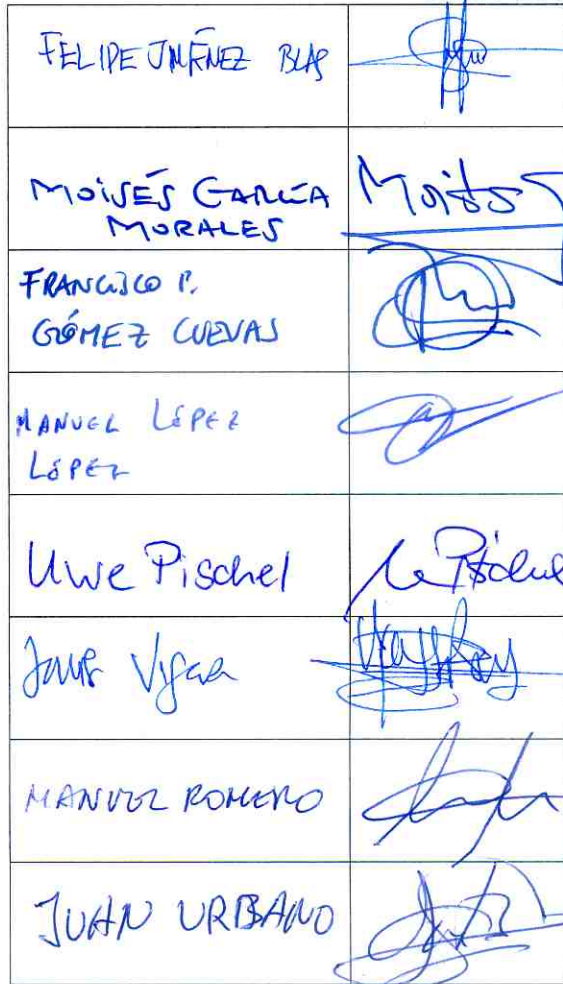 FELIPE JIMÉNEZ BLAS
MOISÉS GARCÍA
MORALES
Moisés
FRANCISCO P.
GÓMEZ CUEVAS
MANUEL LÓPEZ
LÓPEZ
Uwe Pischel
U Pischel
MANUEL ROMERO
JUAN URBANO